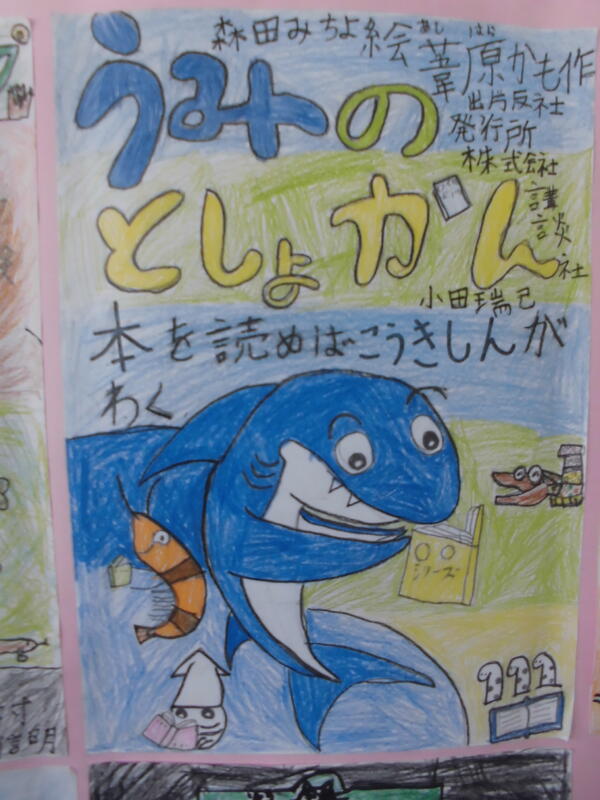 森田みちよ絵
あし はら
葦原かも作
うみの
としょカん
出片反社
発行所
株式会社
講談社
小田瑞己
本を読めばこうきしんが
わく
○○
シリーズ